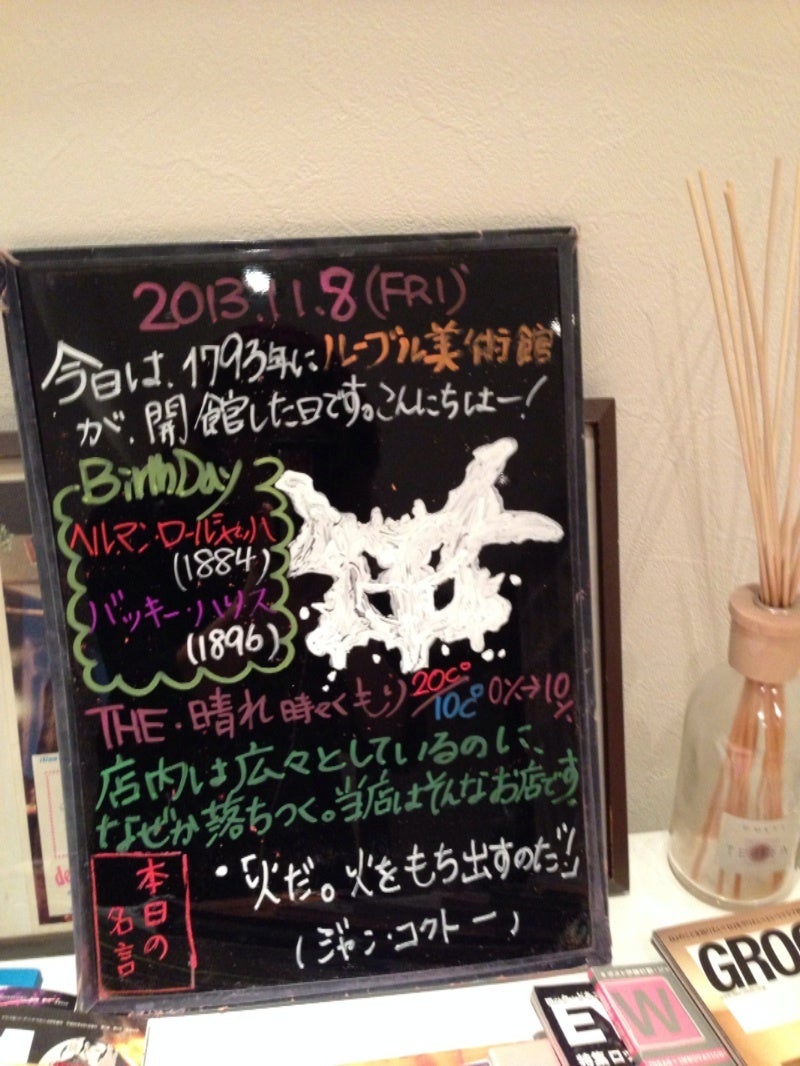 2013.11.8(FRI)
今日は、1793年にルーブル美術館
が、開館した日です。こんにちはー!
BirthDay
ヘルマン・ロールシャッハ
(1884)
バッキー・ハリス
(1896)
THE・晴れ時々くもり 20c°/10c° 0%→10%
店内は広々としているのに、
なぜか落ちつく。当店はそんなお店です。
本日の
名言
・「火だ。火をもち出すのだ!」
(ジャン・コクトー)
GROO
E
W
特集